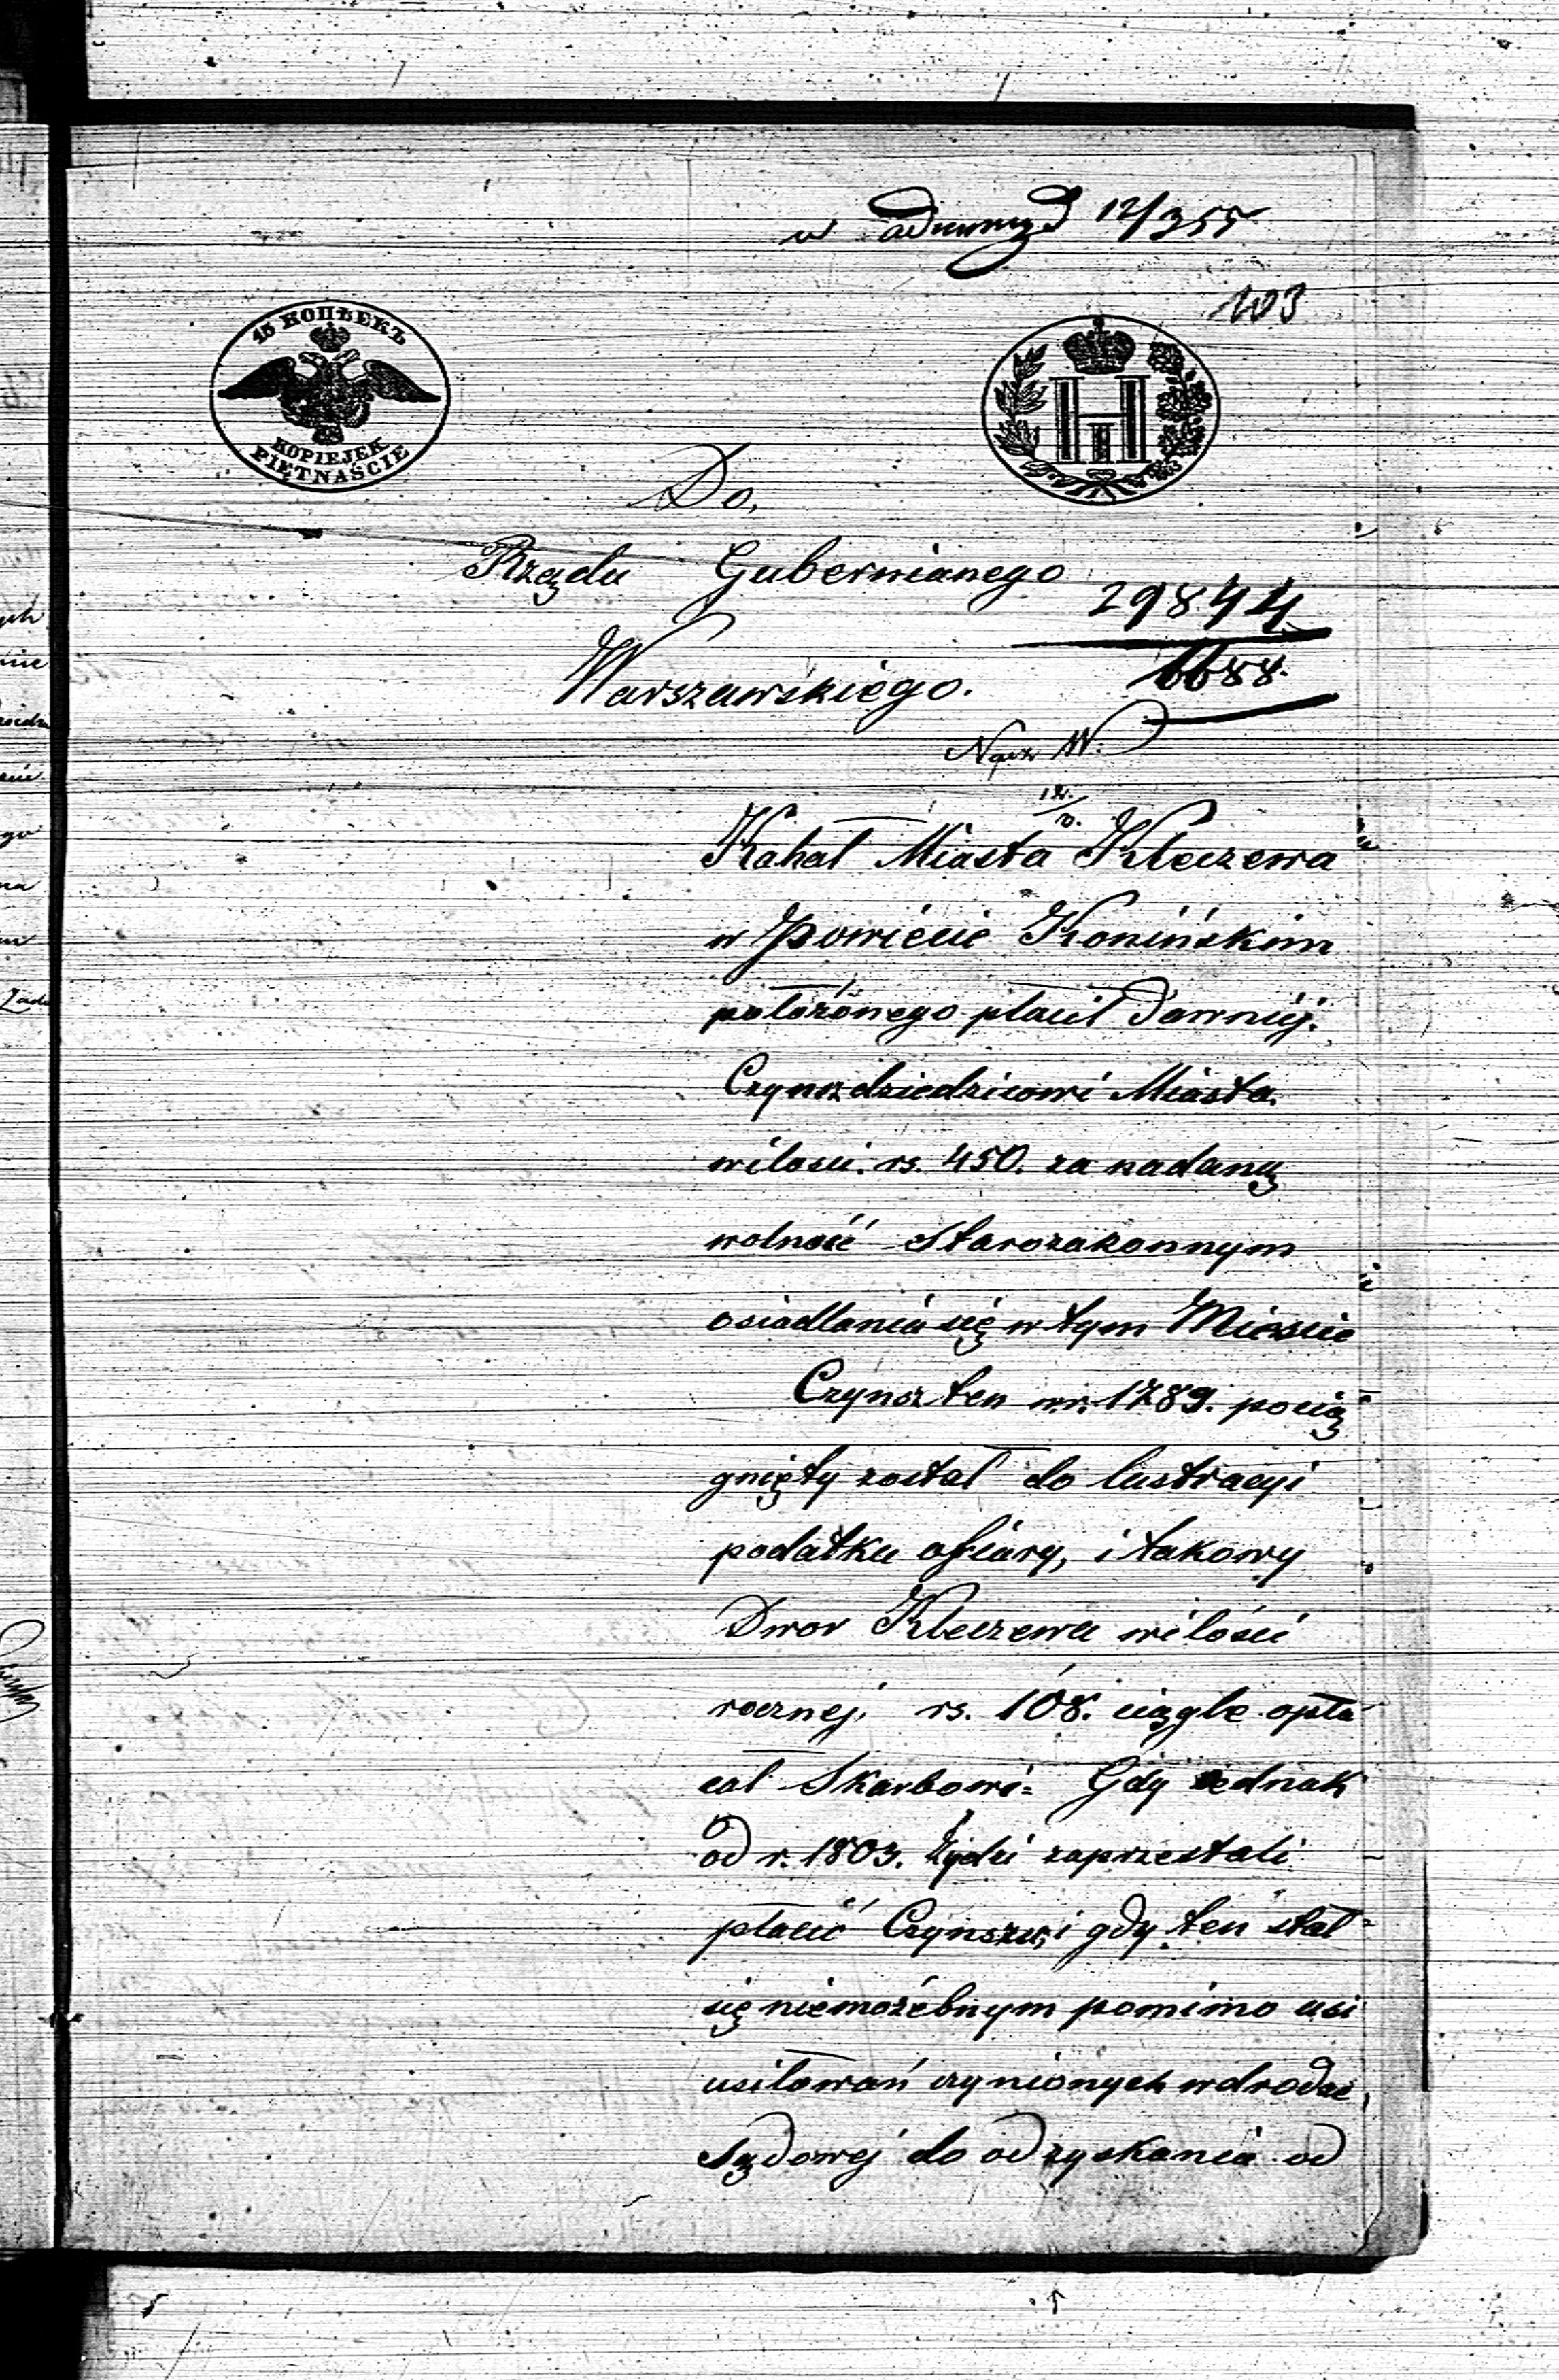 w 12/355
103
15 КОПѢЕКЪ
KOPIEJEK
PIĘTNAŚCIE
Н I
Do,
Rządu Gubernianego
29844
6688.
Warszawskiego.
Kahał Miasta Kleczewa
w Powiecie Konińskim
położonego płacił dawniéj.
Czynsz dziedzicowi Miasta.
wilosci. rs. 450. za nadaną
wolność Starozakonnym
osiadlania się w tym Miescie
Czynsz ten w r. 1789. pocią
gnięty został do lustracyi
podatku ofiary, i takowy
Dwor Kleczewa wilości
rocznej. rs. 108. ciągle opła-
cał Skarbowi= Gdy jednak
od r. 1803. Żydzi zaprzestali
płacić Czynszu, i gdy ten stał-
się niemożebnym pomimo usi
usiłowań czynionych wdrodze
Sądowej do odzyskania od